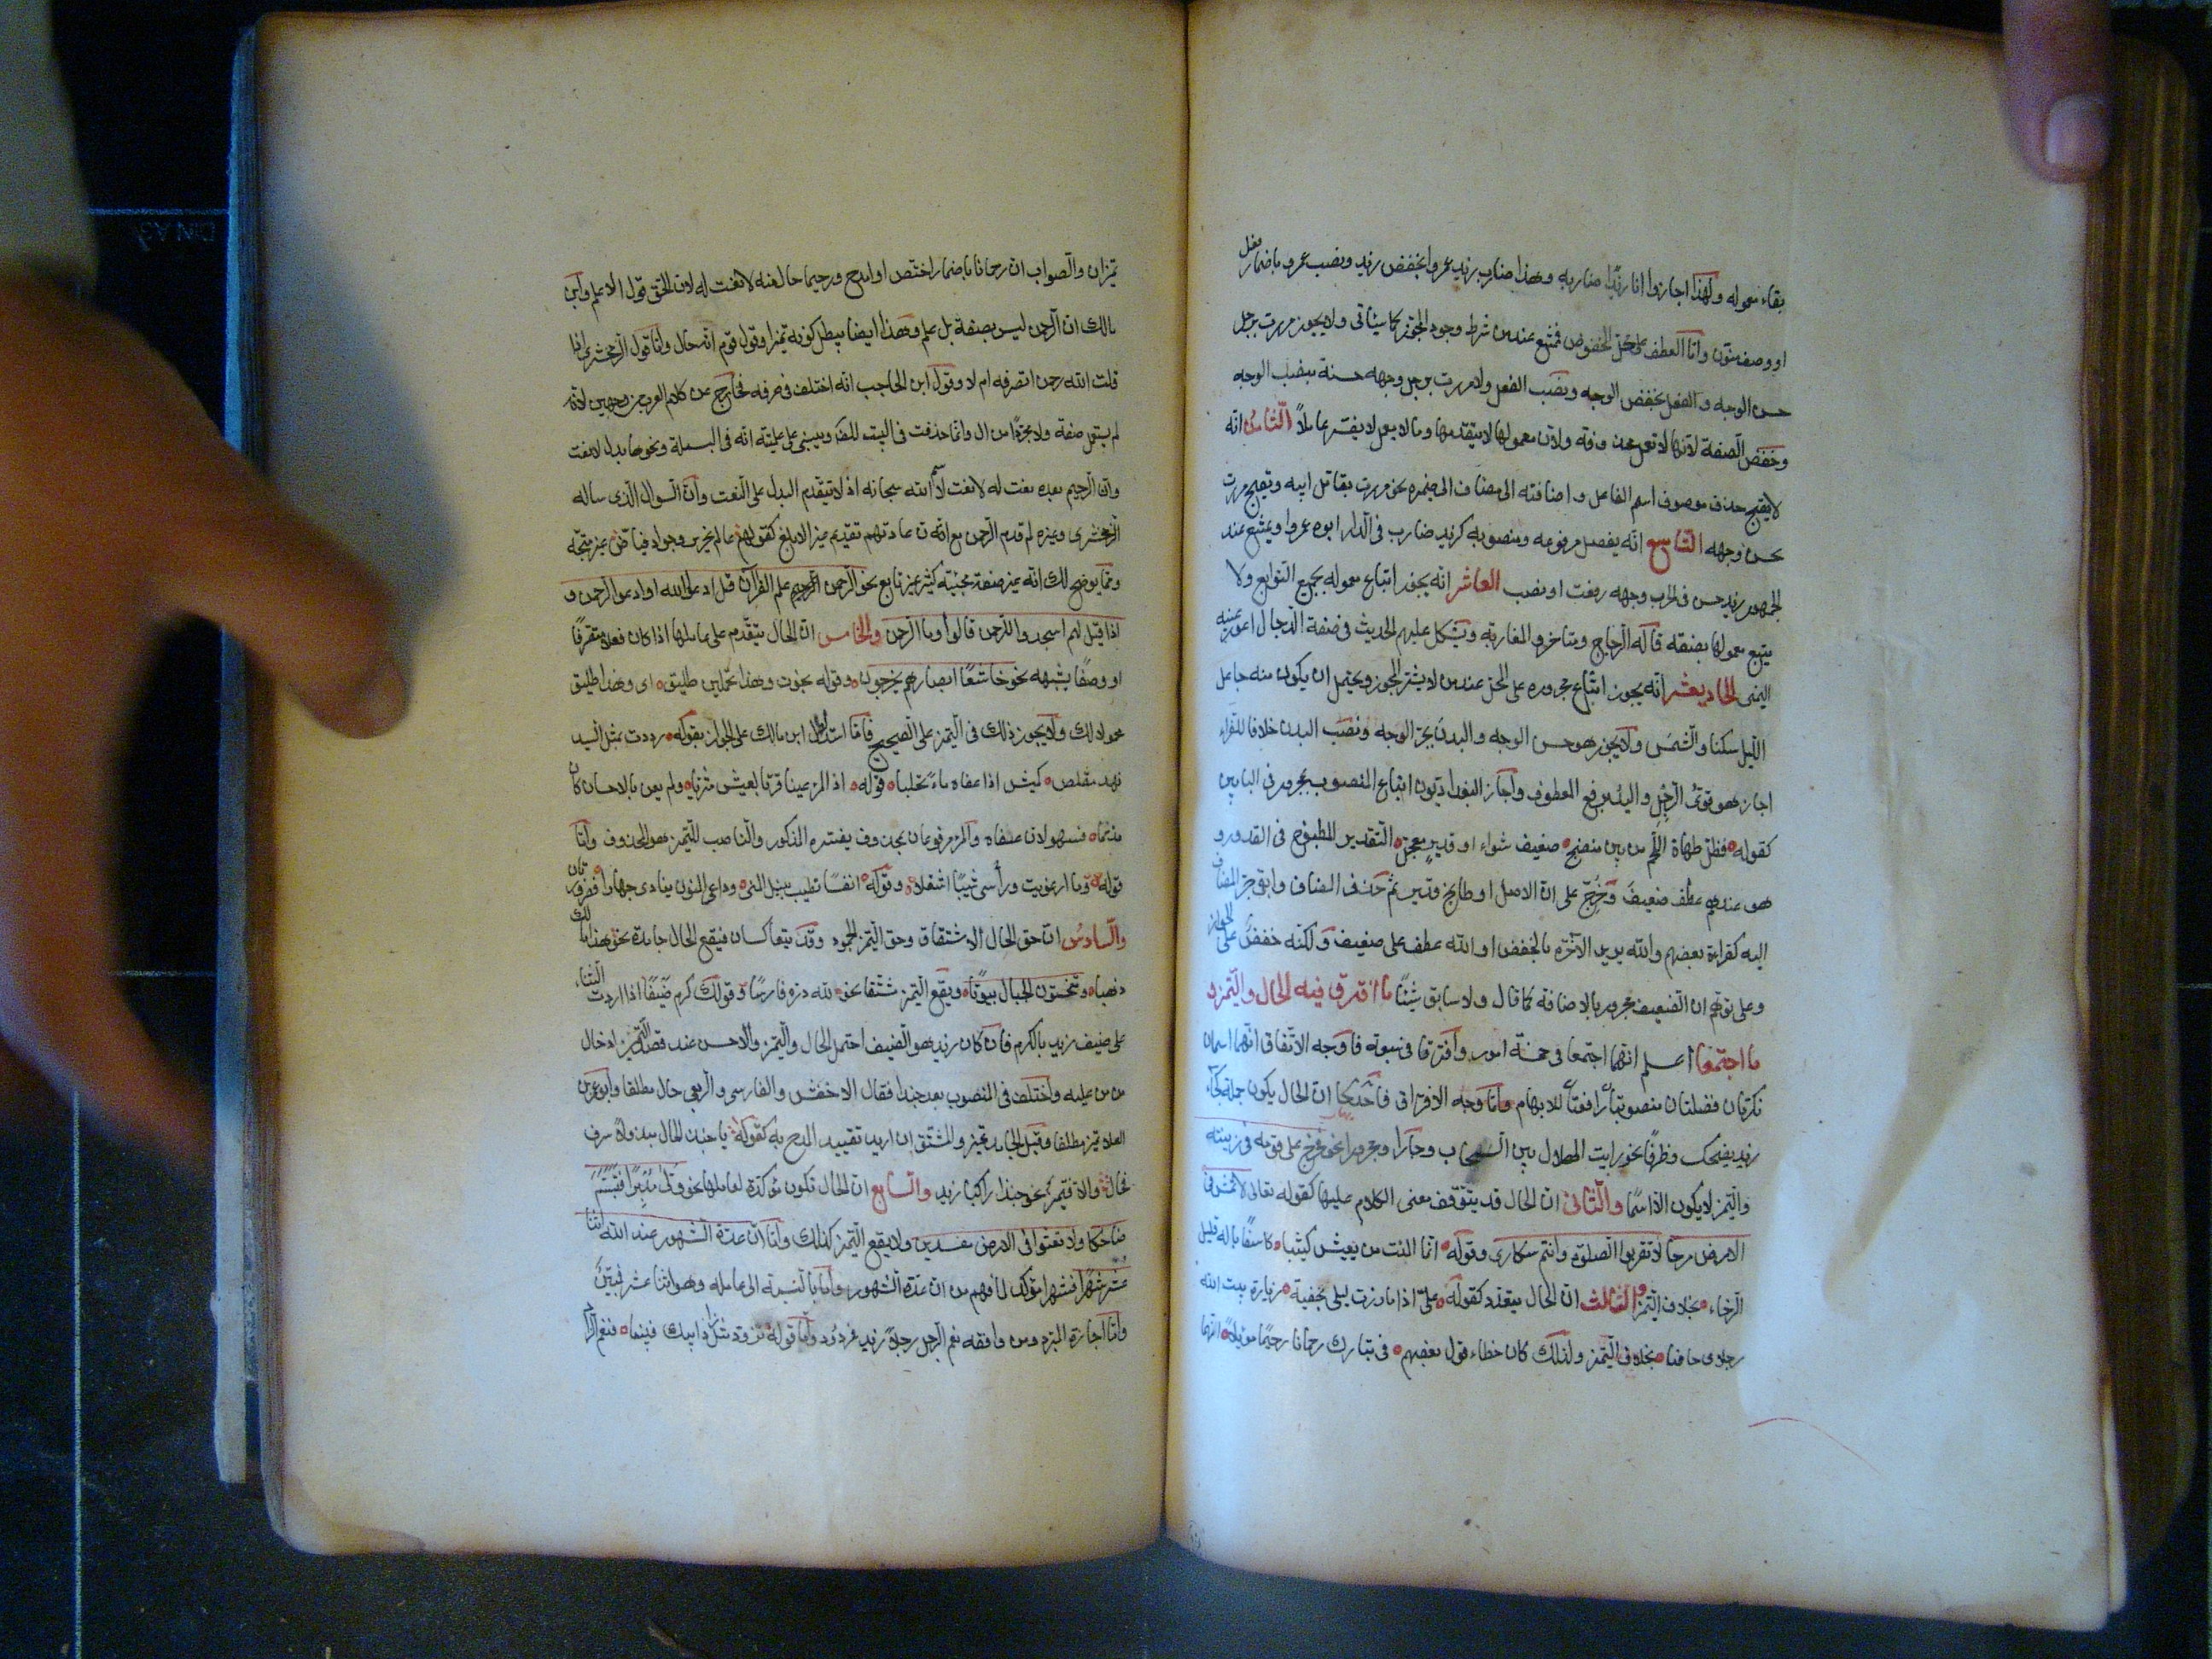 بقاء معموله ولهذا اجازوا انا زيدا ضاربه وهذا ضارب زيد وعمروا بخفض زيد ونصب عمرو باضمار فعل
او وصف منون وأما العطف على محل المخفوض فممتنع عند من شرط وجود المحرز كما سيأتى ولا يجوز مررت برجل
حسن الوجه والفعل بخفض الوجه ونصب الفعل ولا مررت برجل وجهه حسنة بنصب الوجه
وخفض الصفة لانها لا تعمل محذوفة ولان معمولها لا يتقدمها وما لا يعمل لا يفسر عاملا الثامن انه
لا يقبح حذف موصوف اسم الفاعل واضافته الى مضاف الى ضميره نحو مررت بقاتل ابيه ويقبح مررت
بحسن وجهه التاسع انه يفصل مرفوعه ومنصوبه كزيد ضارب فى الدار ابوه عمروا ويمتنع عند
الجمهور زيد حسن فى الحرب وجهه رفعت او نصبت العاشر انه يجوز اتباع معموله بجميع التوابع ولا
يتبع معمولها بصفة قاله الزجاج ومتاخرو المغاربة ويشكل عليهم الحديث فى صفة الدجال اعور عينه
اليمنى الحاديعشر انه يجوز اتباع مجروره على المحل عند من لا يشترط المحرز ويحتمل ان يكون منه جاعل
الليل سكنا والشمس ولا يجوز هو حسن الوجه والبدن بجر الوجه ونصب البدن خلافا للفراء
اجاز هو قوى الرجل واليد برفع المعطوف واجاز البغداديون اتباع المنصوب بمجرور فى البابين
كقوله فظل طهاة اللحم من بين منضج صفيف شواء او قدير معجل التقدير المطبوخ فى القدور و
هو عندهم عطف ضعيف وخرج على ان الاصل او طابخ قدير ثم حذف المضاف وابقى جر المضاف
اليه كقراءة بعضهم والله يريد الآخرة بالخفض او انه عطف على صفيف ولكنه خفض على الجوار
وعلى توهم ان الصفيف مجرور بالاضافة كما قال ولا سابق شيئا ما افترق فيه الحال والتمييز و
ما اجتمعا اعلم انهما اجتمعا فى خمسة امور وافترقا فى سبعة فاوجه الاتفاق انهما اسمان
نكرتان فضلتان منصوبتان رافعتان للابهام وأما وجه الافتراق فاحدها ان الحال يكون جملة كجاء
زيد يضحك وظرفا نحو رايت الهلال بين السحاب وجارا ومجرورا نحو فخرج على قومه فى زينته
والتميز لا يكون الا اسما والثانى ان الحال قد يتوقف معنى الكلام عليها كقوله تعالى لا تمش فى
الارض مرحا لا تقربوا الصلوة وانتم سكارى وقوله انما الميت من يعيش كئيبا كاسفا باله قليل
الرخاء بخلاف التميز والثالث ان الحال يتعدد كقوله علىّ اذا ما زرت ليلى بخفية زيارة بيت الله
رجلان حافيا بخلاف التميز ولذلك كان خطاء قول بعضهم فى تبارك رحمانا رحيما موئلا انهما
تميزان والصواب ان رحمانا باضمار اختص او امدح ورحيما حال منه لا نعت له لان الحق قول الاعلم وابن
مالك ان الرحمن ليس بصفة بل علم وهذا ايضا يبطل كونه تميزا وقول قوم انه حال واما قول الزمخشرى اذا
قلت الله رحمن اتصرفه ام لا وقول ابن الحاجب انه اختلف فى صرفه فخارج عن كلام العرب من وجهين لانه
لم يستعمل صفة ولا مجردا من ال وانما حذفت فى البيت للضرورة وينبنى على علميته انه فى البسملة ونحوها بدل لا نعت
وان الرحيم بعده نعت له لا نعت لاسم الله سبحانه اذ لا يتقدم البدل على النعت وان السوال الذى ساله
الزمخشرى وغيره لم قدم الرحمن مع ان عادتهم تقديم غير الابلغ كقولهم عالم نحرير وجواد فياض غير متجه
ومما يوضح لك انه غير صفة مجيئه كثير غير تابع نحو الرحمن علم القرآن قل ادعوا الله او ادعوا الرحمن و
اذا قيل لهم اسجدوا للرحمن قالوا وما الرحمن والخامس ان الحال يتقدم على عاملها اذا كان فعلا متصرفا
او وصفا يشبهه نحو خاشعا ابصارهم يخرجون وقوله نجوت وهذا تحملين طليق اى وهذا طليق
محمولا لك ولا يجوز ذلك فى التميز على الصحيح فاما استدلال ابن مالك على الجواز بقوله رددت بمثل السيد
نهد مقلص كميش اذا عطفاه ماء تحلبا وقوله اذا المرء عينا قر بالعيش مثريا ولم يعن بالاحسان كان
مذمما فسهو لان عطفاه والمرء مرفوعان بمحذوف يفسره المذكور والناصب للتميز هو المحذوف واما
قوله وما ارعويت ورأسى شيبا اشتعلا وقوله انفسا تطيب بنيل المنى وداعى المنون ينادى جهارا فضرورتان
والسادس ان حق الحال الاشتقاق وحق التميز الجمود وقد يتعاكسان فيقع الحال جامدة نحو هذا مالك
ذهبا وتنحتون الجبال بيوتا ويقع التميز مشتقا نحو لله دره فارسا وقولك كرم ضيفا اذا اردت الثناء
على ضيف زيد بالكرم فان كان زيد هو الضيف احتمل الحال والتميز والاحسن عند قصد التميز ادخال
من عليه واختلف فى المنصوب بعد حبذا فقال الاخفش والفارسى والربعى حال مطلقا وابو عمرو بن
العلا تميز مطلقا وقيل الجامد تميز والمشتق ان اريد تقييد المدح به كقوله يا حبذا المال مبذولا بلا سرف
فحال والا فتميز نحو حبذا راكبا زيد والسابع ان الحال تكون مؤكدة لعاملها نحو ولى مدبرا فتبسم
ضاحكا ولا تعثوا فى الارض مفسدين ولا يقع التميز كذلك واما ان عدة الشهور عند الله اثنا
عشر شهرا فشهرا مؤكد لما فهم من ان عدة الشهور واما بالنسبة الى عامله وهو اثنا عشر فمبين
واما اجازة المبرد ومن وافقه نعم الرجل رجلا زيد فمردود واما قوله تزود مثل زاد ابيك فينا فنعم الزاد